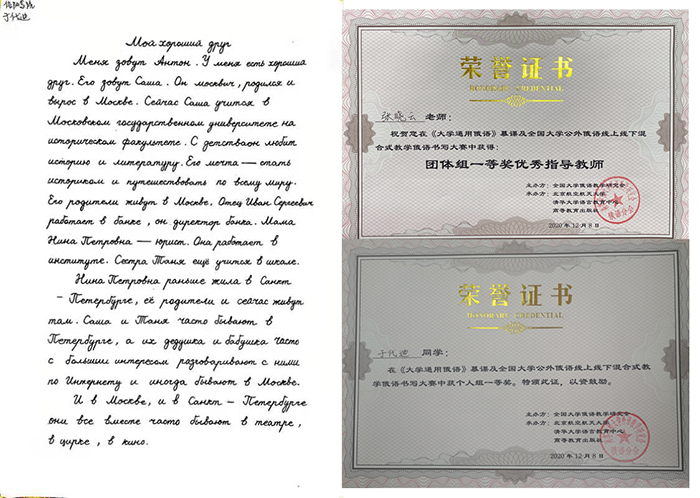 于代迪
Мой хороший друг
Меня зовут Антон. У меня есть хороший
друг. Его зовут Саша. Он москвич, родился и
вырос в Москве. Сейчас Саша учится в
Московском государственном университете на
историческом факультете. С детства он любит
историю и литературу. Его мечта — стать
историком и путешествовать по всему миру.
Его родители живут в Москве. Отец Иван Сергеевич
работает в банке, он директор банка. Мама
Нина Петровна — юрист. Она работает в
институте. Сестра Таня ещё учится в школе.
Нина Петровна раньше жила в Санкт
- Петербурге, её родители и сейчас живут
там. Саша и Таня часто бывают в
Петербурге, а их дедушка и бабушка часто
с большим интересом разговаривают с ними
по Интернету и иногда бывают в Москве.
И в Москве, и в Санкт - Петербурге
они все вместе часто бывают в театре,
в цирке, в кино.
荣誉证书
HONORARY CREDENTIAL
张晓云 老师:
祝贺您在《大学通用俄语》慕课及全国大学公外俄语线上线下混
合式教学俄语书写大赛中获得:
团体组一等奖优秀指导教师
主办方:全国大学俄语教学研究会
承办方:北京航空航天大学
清华大学语言教育中心
高等教育出版社
2020年12月8日
荣誉证书
HONORARY CREDENTIAL
于代迪 同学:
在《大学通用俄语》慕课及全国大学公外俄语线上线下混合式教
学俄语书写大赛中获个人组一等奖。特颁此证,以资鼓励。
主办方:全国大学俄语教学研究会
承办方:北京航空航天大学
清华大学语言教育中心
高等教育出版社
2020年12月8日